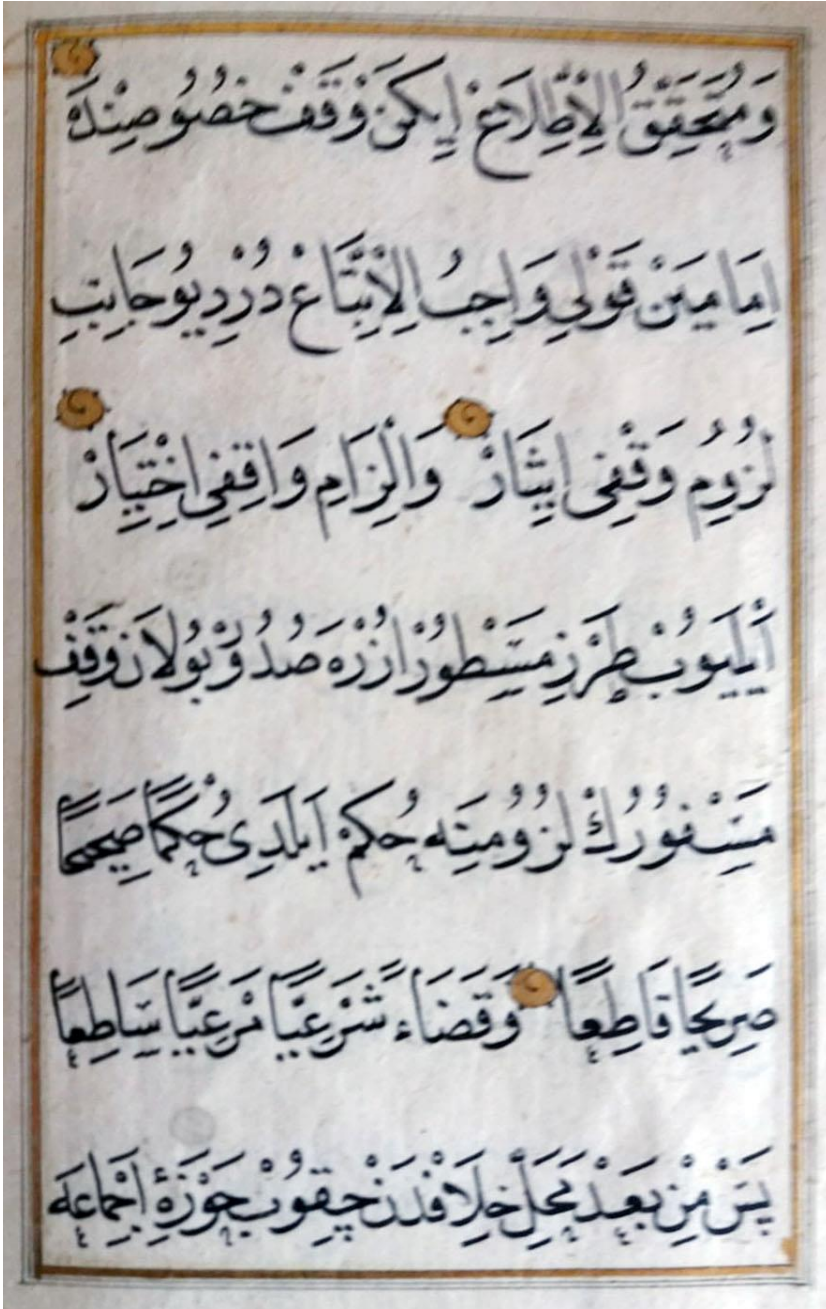 وَمُتَحَقِّقُ الْاِطِّلَاعْ اِيكَنْ وَقَفْ خُصُوصِنْدَهْ
اِمَامَيْنْ قَوْلِي وَاجِبُ الْاِتِّبَاعْ دُرْ دِيُو جَانِبِ
لُزُومِ وَقْفِى اِيثَارْ وَالْزَامِ وَاقِفِى اِخْتِيَارْ
اَيْلَيُوبْ طَرْزِ مَسْطُورْ اُزْرَهْ صُدُورْ بُولَانْ وَقْفِ
مَسْفُورُكْ لُزُومِنَه حُكمْ اَيلَدِى حُكْمًا صَحِيحًا
صَرِيحًا قَاطِعًا وَقَضَاءً شَرْعِيًّا مَرْعِيًّا سَاطِعًا
پَسْ مِنْ بَعْدْ مَحَلِّ خِلَافْدَنْ چِقُوبْ حَوْزَۀِ اِجْمَاعَه